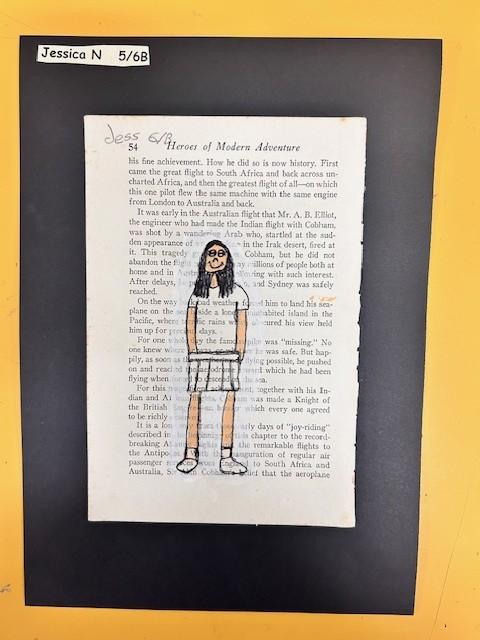 Jessica N 5/6B
Jess 6/B
54 Heroes of Modern Adventure
his fine achievement. How he did so is now history. First
came the great flight to South Africa and back across un-
charted Africa, and then the greatest flight of all—on which
this one pilot flew the same machine with the same engine
from London to Australia and back.
It was early in the Australian flight that Mr. A. B. Elliot,
the engineer who had made the Indian flight with Cobham,
was shot by a wandering Arab who, startled at the sud-
den appearance of in the Irak desert, fired at
it. This tragedy Cobham, but he did not
abandon the flight millions of people both at
home and in with such interest.
After delays, and Sydney was safely
reached.
On the way bad weather him to land his sea-
plane on the side a inhabited island in the
Pacific, where rains obscured his view held
him up for days.
For one whole the famous was "missing." No
one knew where he was safe. But hap-
pily, as soon as possible, he pushed
on and reached which he had been
flying when the sea.
For this together with his In-
dian and Cobham was made a Knight of
the British which every one agreed
to be richly
It is a long early days of "joy-riding"
described in this chapter to the record-
breaking the remarkable flights to
the Antipodes inauguration of regular air
passenger from England to South Africa and
Australia, Cobham's belief that the aeroplane